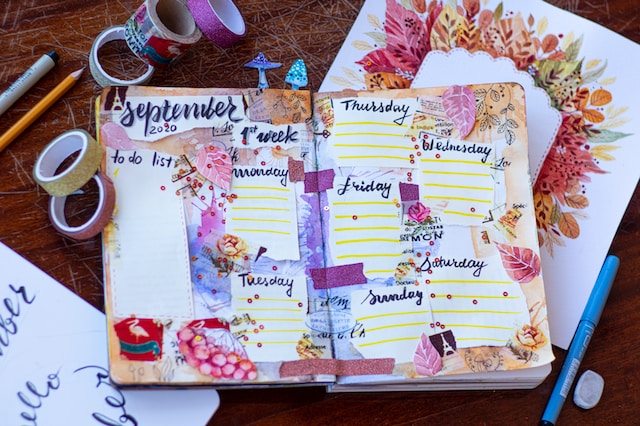 september
2020
1st week
to do list
monday
Tuesday
Thursday
Wednesday
friday
Saturday
Sunday
mber
hello